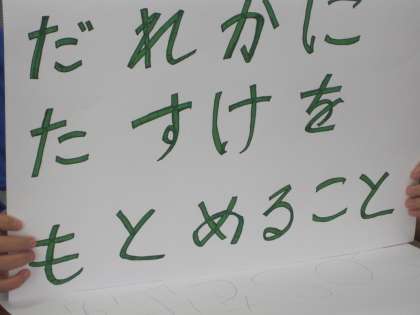 だれかに
たすけを
もとめること